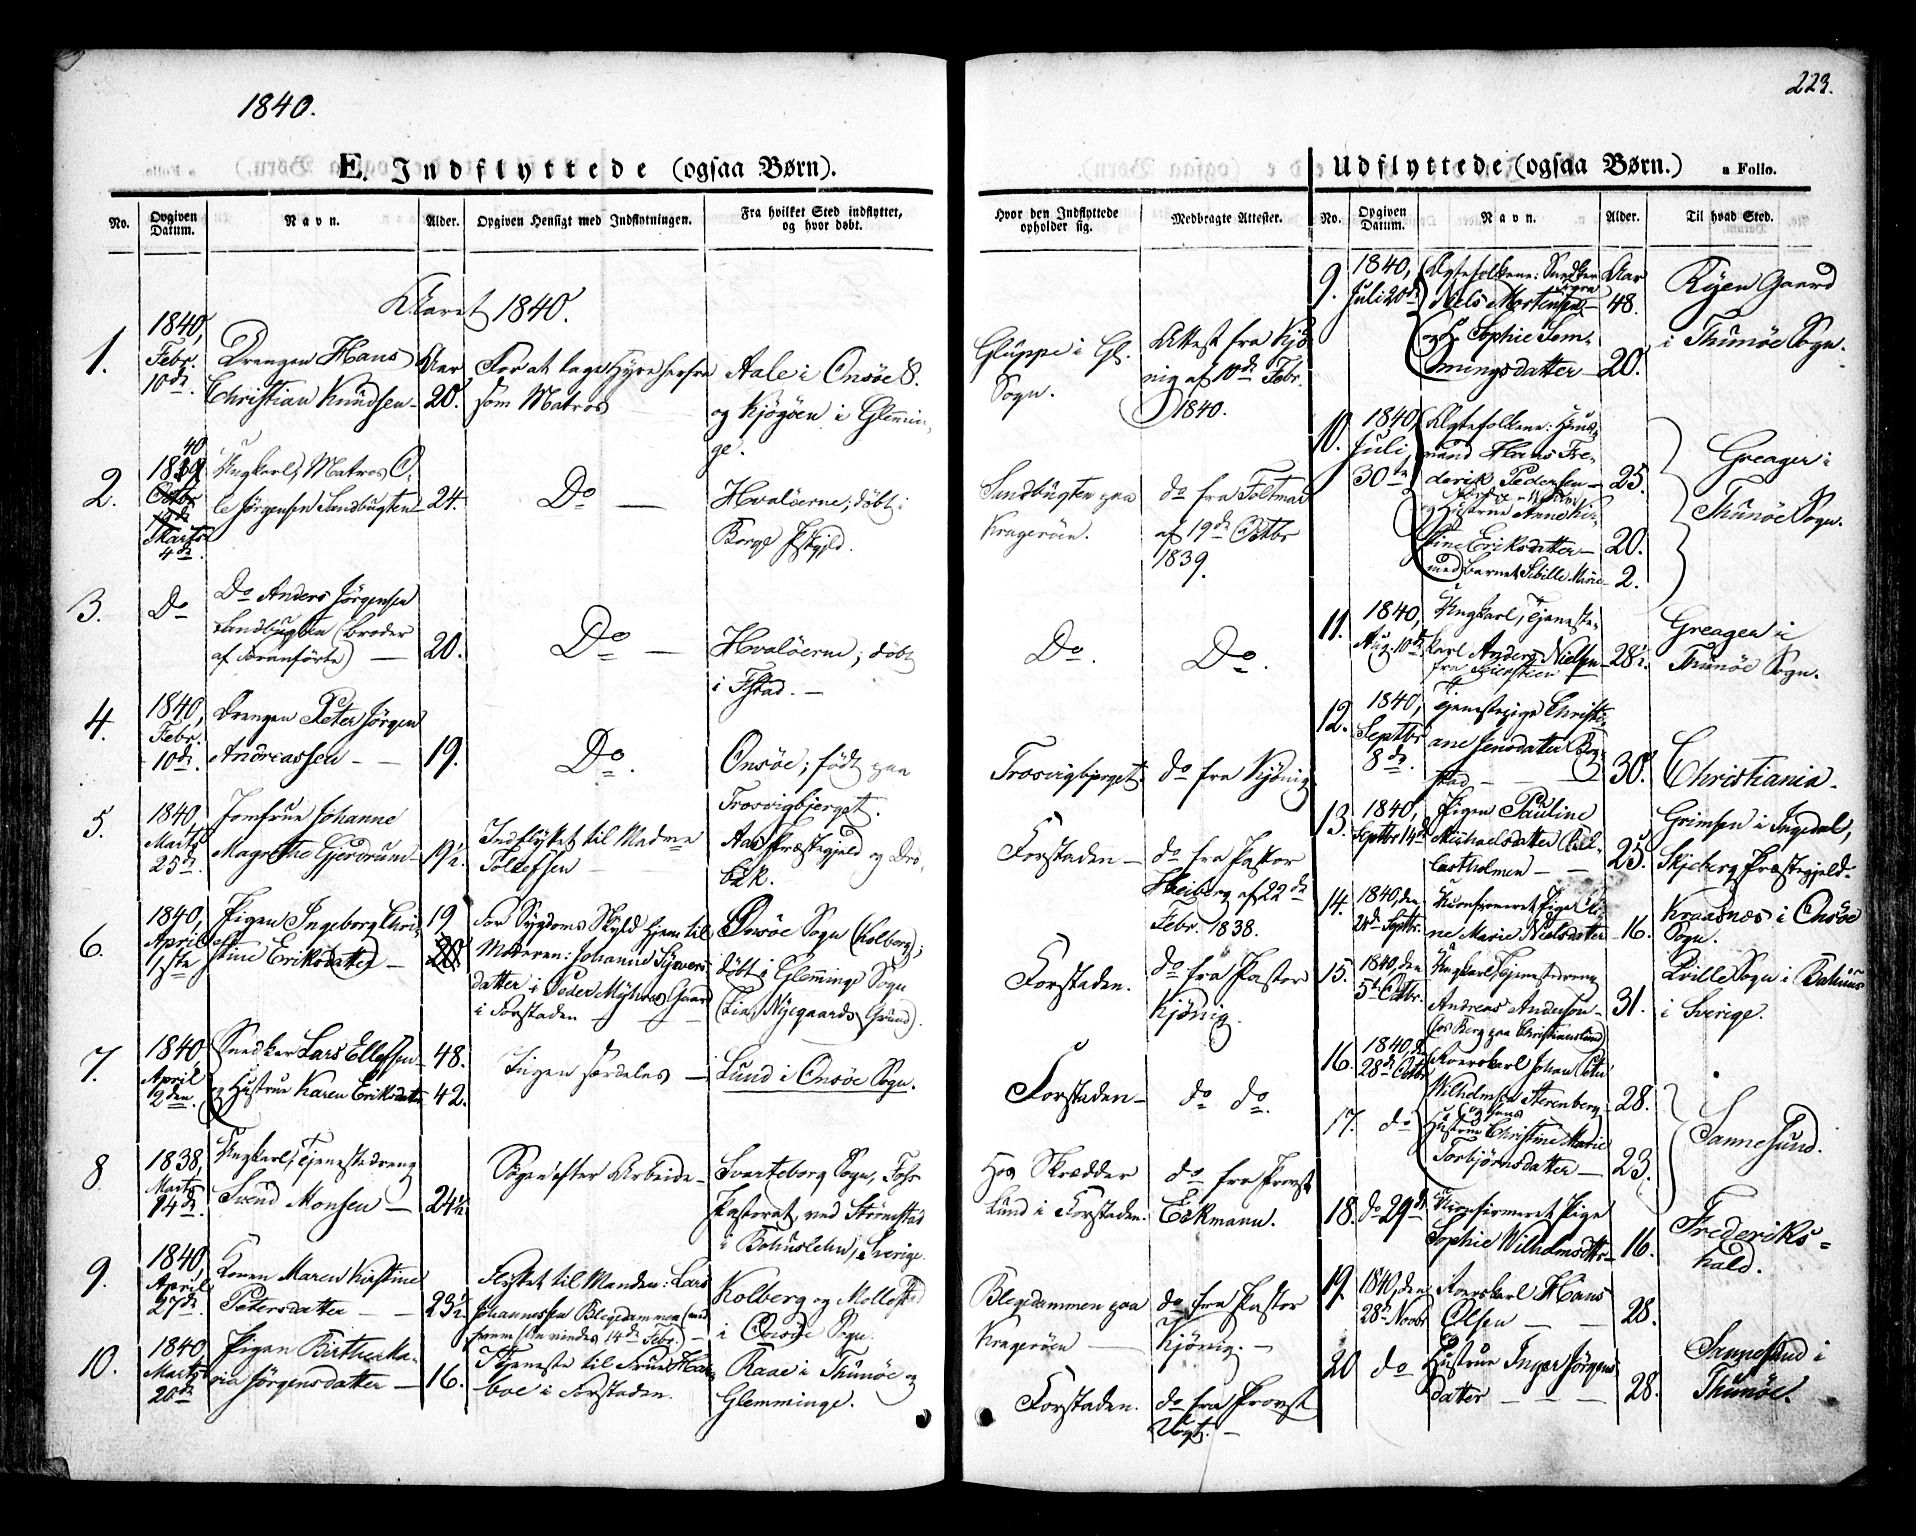 1840.
223.
E. Indflyttede (ogsaa Børn).
Udflyttede (ogsaa Børn.) a Folio.
No.
Opgiven Datum.
Navn.
Alder.
Opgiven Hensigt med Indflytningen.
Fra hvilket Sted indflyttet, og hvor døbt.
Hvor den Indflyttede opholder sig.
Medbragte Attester.
No.
Opgiven Datum.
Navn.
Alder.
Til hvad Sted.
Aaret 1840.
1.
1840,
Febr.
10de.
Drengen Hans
Christian Knudsen
Aar
20.
For at tage Hyre herfra
som Matros
Aale i Onsöe S.
og Kjøgøen i Glemmin-
ge.
Gluppe i Gl.
Sogn.
Attest fra Kjö-
nig af 10de Febr.
1840.
2.
40
1839
Octbr
19de
Marts
4de.
Ungkarl, Matros O-
le Jörgensen Sandbugten
24.
Do
Hvalöerne; döbt i
Borge Pstgjld.
Sandbugten paa
Krageröen.
do fra Foltmar
af 19de Octbr
1839.
3.
Do
Do Anders Jörgensen
Sandbugten (broder
af foranförte)
20.
Do
Hvalöerne; döbt
i Fstad.
Do.
Do.
4.
1840,
Febr.
10de.
Drengen Peter Jörgen
Andreassen
19.
Do.
Onsöe; födt paa
Trosvigbjerget.
Trosvigbjerget.
do fra Kjönig
5.
1840,
Marts
25de.
Jomfrue Johanne
Magrethe Gjerdrum
19½.
Indflyttet til Madme
Tollefsen
Aas Præstegjeld og Drö-
bak.
Forstaden
do fra Pastor
Heiberg af 22de
Febr. 1838.
6.
1840,
April
1ste
Pigen Ingeborg Chri-
stine Eriksdatter
19
20
For Sygdoms Skyld hjem til
Moderen: Johanne Syvers-
datter i Peder Myhres Gaard
i Forstaden
Onsöe Sogn (Kolberg);
döbt i Glemminge Sogn
(Lia, Nyegaards Grund).
Forstaden.
do fra Pastor
Kjönig.
7.
1840,
April
2den.
Snedker Lars Ellefsen
og Hustrue Karen Eriksdatter
48.
42.
Ingen særdeles
Lund i Onsöe Sogn.
Forstaden
do do.
8
1838,
Marts
14de.
Ungkarl, Tjenestedreng
Svend Monsen
24½
Søgen efter Arbeide
Svarteborg Sogn, Fohs
Pastorat, ved Strömstad
i Bohuslehn, Sverige.
Hos Skrædder
Lund i Forstaden.
do fra Provst
Eckmann.
9.
1840,
April
27de.
Konen Maren Kirstine
Petersdatter
23½
Flyttet til Manden: Lars
Johannessen Blegedammen
Kolberg og Mollestad
i Onsöe Sogn.
Blegedammen paa
Kragerøen
do fra Pastor
Kjönig.
10.
1840
Marts
20de
Pigen Birthe Ma-
ria Jörgensdatter
16.
Tjeneste til Frue Har-
boe i Forstaden.
Raae i Thunöe og
Glemminge.
Forstaden.
do fra Provst
Vogt.
9.
1840,
Juli 20de
Ægtefolkene: Snedker
Niels Mortensen
og H. Sophie Tom-
mingsdatter
Aar
48.
20.
Ryen Gaard
i Thunöe Sogn.
10.
1840,
Juli
30te
Ægtefolkene: Huus-
mand Hans Fre-
derik Pedersen
og Hustrue Anne Kir-
stine Eriksdatter
med barnet Sibille Marie
25.
20.
2.
Greager i
Thunöe Sogn.
11.
1840,
Aug. 10de.
Ungkarl, Tjeneste-
karl Anders Nielsen
28½.
Greagen i
Thunöe Sogn.
12.
1840,
Septbr
8de.
Tjenestepige Christi-
ane Jensdatter Bog-
stad
30.
Christiania.
13.
1840,
Septbr 14de
Pigen Pauline
Michaelsdatter
25.
Grimsen i Ingedal,
Skjeberg Præstegjeld.
14.
1840, den
Septbr.
Ukonfirmeret Pige
ne Marie Nielsdatter
16.
Kraasnæs i Onsöe
Sogn.
15.
1840, den
5te Octbr.
Ungkarl, Tjenestedreng
Andreas Andersen
31.
Qville Sogn i Bahuus
i Sverige.
16.
1840, d.
28de Octbr
Roerskarl Johan Peter
Wilhelmsen Sterenberg
28.
Sannesund.
17.
do
og hans
Hustrue Christine Marie
Torbjörnsdatter
23.
18.
do 29de
Ukonfirmeret Pige
Sophie Wilhelmsdtr
16.
Frederiks-
hald.
19.
1840, den
28de Novbr
Roerskarl Hans
Olsen
28.
Sannesund i
Thunöe.
20
do
Hustrue Inger Jörgens
datter
28.